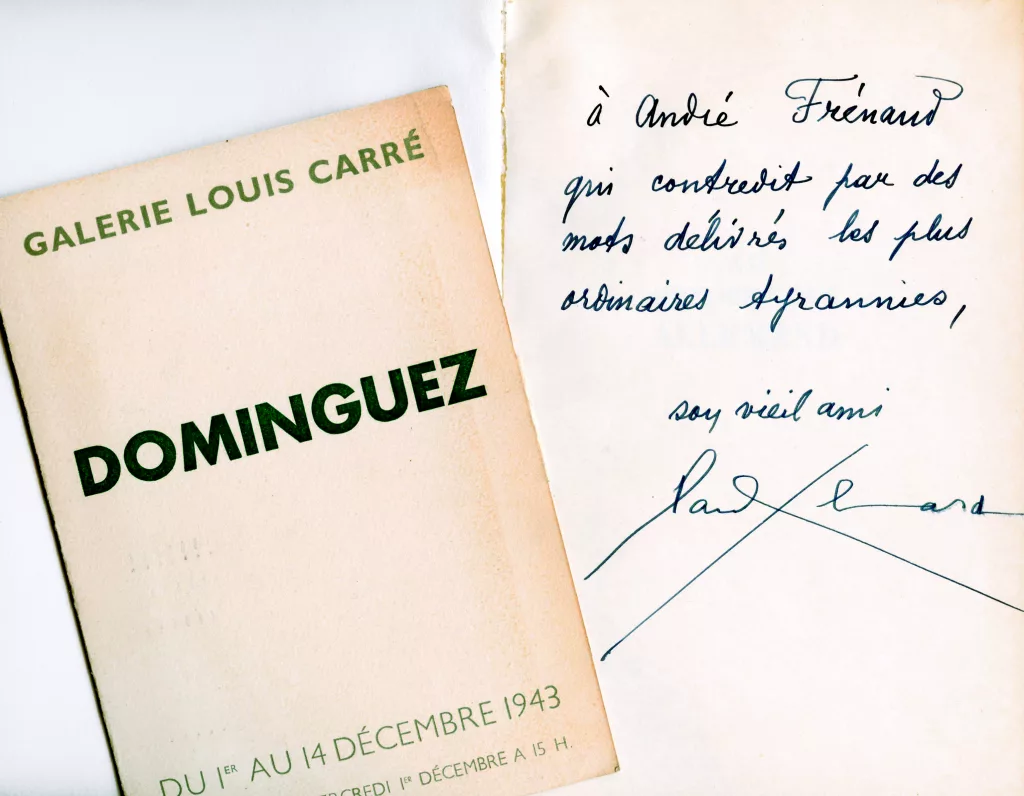 GALERIE LOUIS CARRÉ
DOMINGUEZ
DU 1ER AU 14 DÉCEMBRE 1943
1er DÉCEMBRE A 15 H.
à André Frénaud
qui contredit par des
mots délivrés les plus
ordinaires tyrannies,
son vieil ami
Paul Eluard